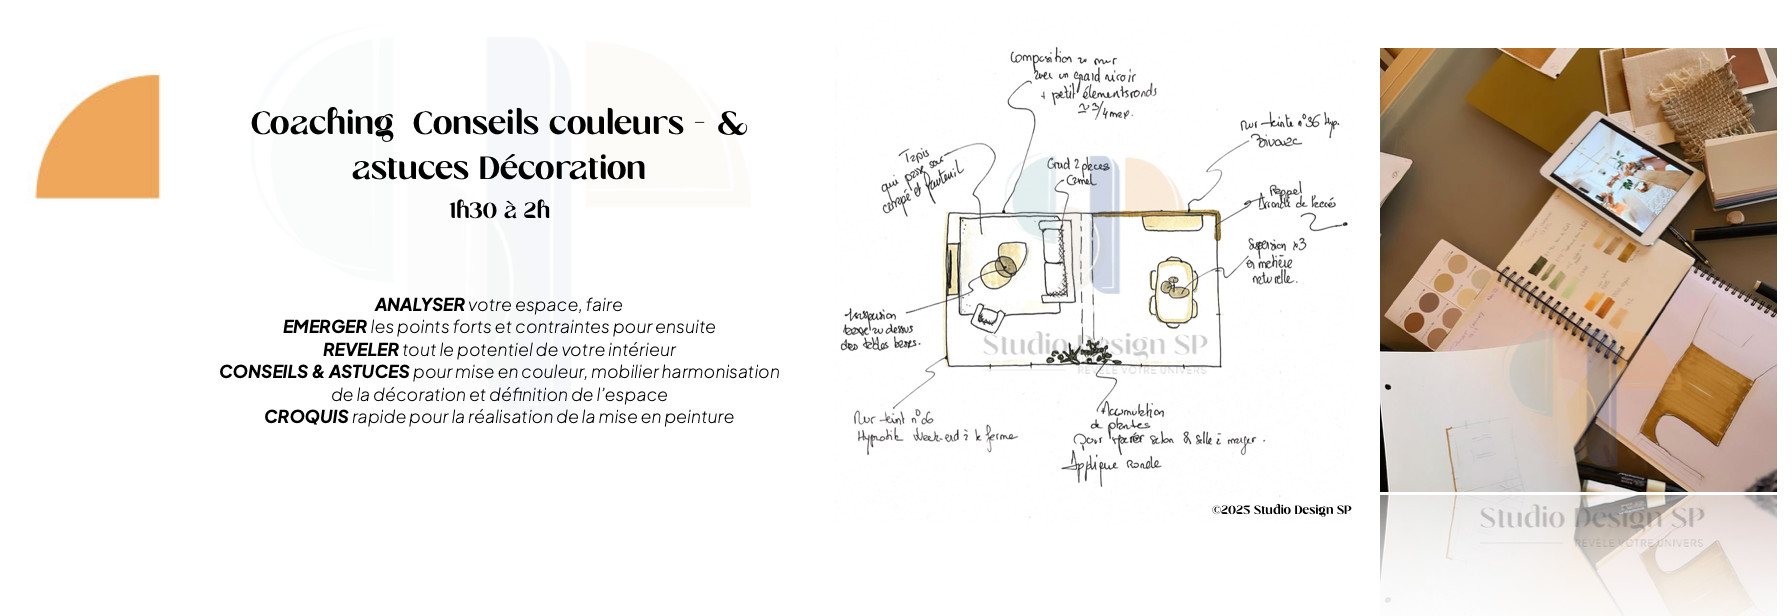 Coaching Conseils couleurs - &
astuces Décoration
1h30 à 2h
ANALYSER votre espace, faire
EMERGER les points forts et contraintes pour ensuite
REVELER tout le potentiel de votre intérieur
CONSEILS & ASTUCES pour mise en couleur, mobilier harmonisation
de la décoration et définition de l'espace
CROQUIS rapide pour la réalisation de la mise en peinture
Composition au mur
avec un grand miroir
+ petit éléments ronds
Tapis
qui passe sous
canapé et fauteuil
Canapé 2 places
Camel
Mur teinte n°36 Hyp.
Bivouac
Rappel
Suspension x3
en matière
naturelle.
Suspension
basse au dessus
des tables basses.
Mur teint n°06
Hypnotik Week-end à la ferme
Accumulation
de plantes
pour séparer salon & salle à manger.
Applique ronde
Studio Design SP
RÉVÈLE VOTRE UNIVERS
©2025 Studio Design SP
Studio Design SP
RÉVÈLE VOTRE UNIVERS